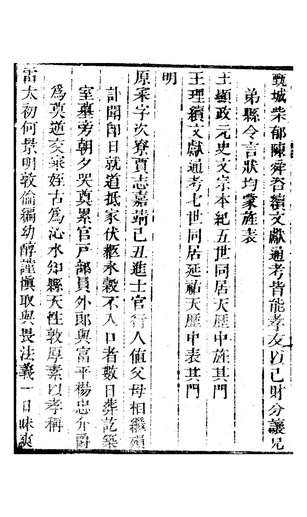 甄城柴郁陳舜咨續文獻通考皆能孝友以己財分讓兄
弟縣令言狀均蒙旌表
王顯政元史文宗本紀五世同居天歷中旌其門
王理續文獻通考七世同居延祐天歷中表其門
明
原寀字次寮賈志嘉靖己丑進士官行人值父母相繼殞
訃聞即日就道抵家伏柩水穀不入口者數日葬訖築
室墓旁朝夕哭奠累官戸部員外郎與富平楊忠介爵
為莫逆交寀姪古為沁水知縣天性敦厚素以孝稱
雷太初何景明敦倫編幼醇謹慎取與畏法義一日昧爽